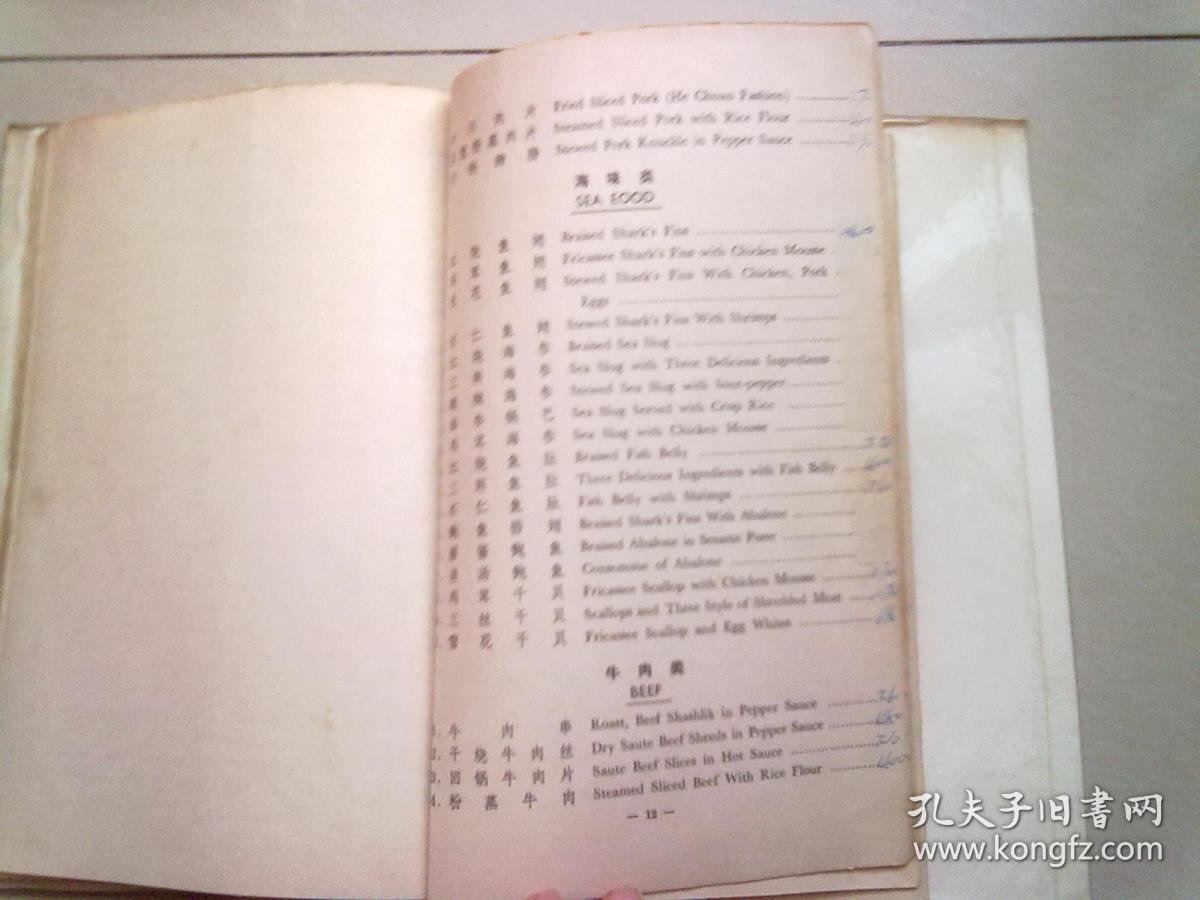 川肉片 Fried Sliced Pork (He Chuan Fashion)
粉蒸肉片 Steamed Sliced Pork with Rice Flour
Stewed Pork Knuckle in Pepper Sauce
海味类
SEA FOOD
烧鱼翅 Braised Shark's Fins
鱼翅 Fricassee Shark's Fins with Chicken Mousse
花鱼翅 Stewed Shark's Fins With Chicken, Pork
Eggs
仁鱼翅 Stewed Shark's Fins With Shrimps
烧海参 Braised Sea Slug
三鲜海参 Sea Slug with Three Delicious Ingredients
海参 Stewed Sea Slug with Sour-pepper
参锅巴 Sea Slug Served with Crisp Rice
海参 Sea Slug with Chicken Mousse
烧鱼肚 Braised Fish Belly
三鲜鱼肚 Three Delicious Ingredients with Fish Belly
仁鱼肚 Fish Belly with Shrimps
鲍鱼翅 Braised Shark's Fins With Abalone
鲍鱼 Braised Abalone in Sesame Paste
清汤鲍鱼 Consomme of Abalone
干贝 Fricassee Scallop with Chicken Mousse
三丝干贝 Scallops and Three Style of Shredded Meat
雪花干贝 Fricassee Scallop and Egg Whites
牛肉类
BEEF
1. 牛肉串 Roast, Beef Shashlik in Pepper Sauce
2. 干烧牛肉丝 Dry Saute Beef Shreds in Pepper Sauce
3. 回锅牛肉片 Saute Beef Slices in Hot Sauce
4. 粉蒸牛肉 Steamed Sliced Beef With Rice Flour
— 12 —
孔夫子旧书网
www.kongfz.com